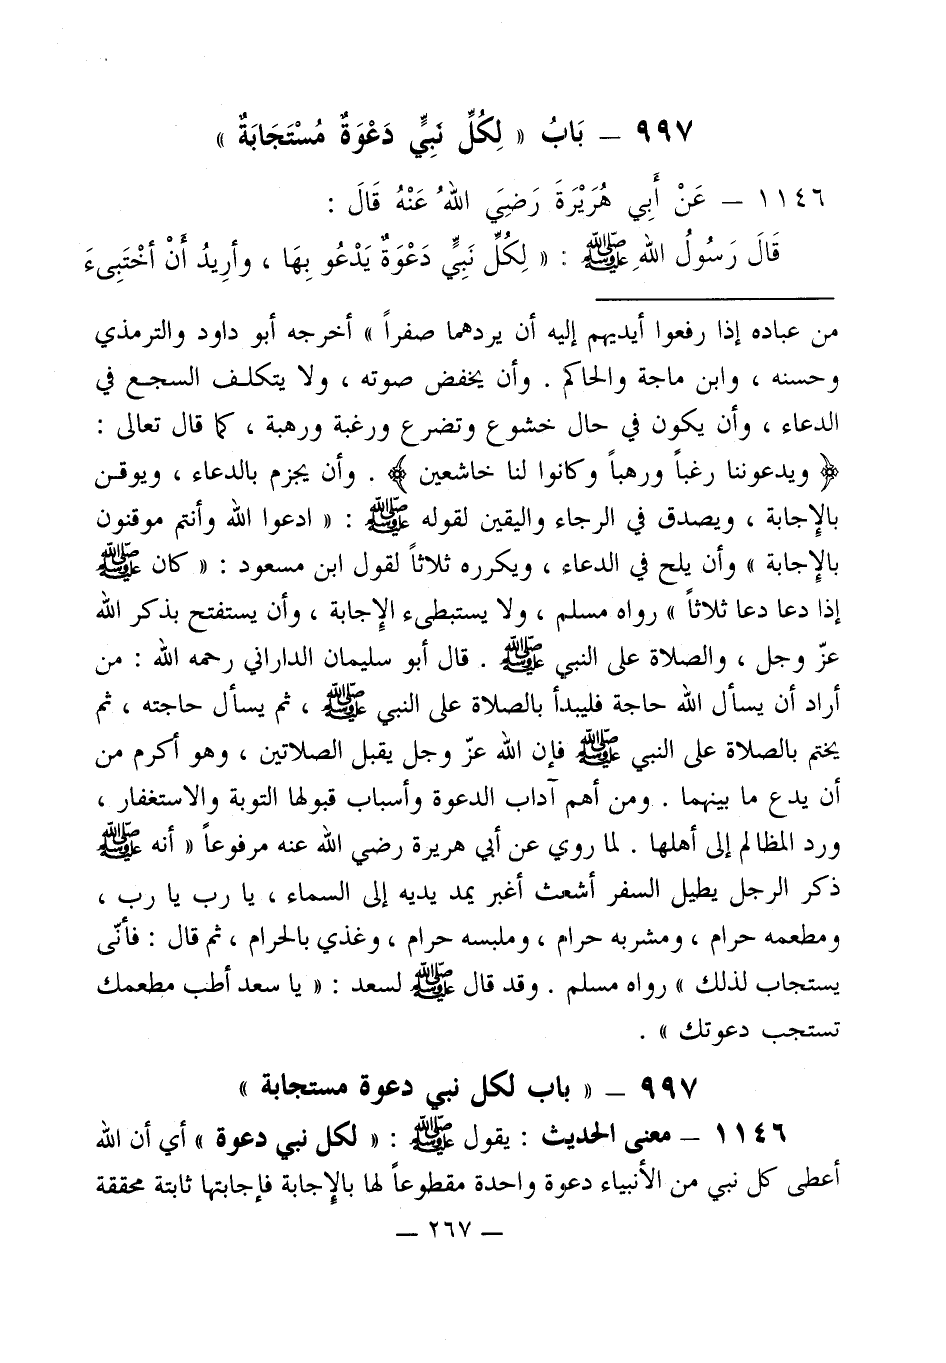 ٩٩٧ – بَابُ « لِكُلِّ نَبِيٍّ دَعْوَةٌ مُسْتَجَابَةٌ »
١١٤٦ – عَنْ أَبِي هُرَيْرَةَ رَضِيَ اللهُ عَنْهُ قَالَ :
قَالَ رَسُولُ اللهِ ﷺ : « لِكُلِّ نَبِيٍّ دَعْوَةٌ يَدْعُو بِهَا ، وأرِيدُ أَنْ أخْتَبِىءَ
من عباده إذا رفعوا أيديهم إليه أن يردهما صفراً » أخرجه أبو داود والترمذي
وحسنه ، وابن ماجة والحاكم . وأن يخفض صوته ، ولا يتكلف السجع في
الدعاء ، وأن يكون في حال خشوع وتضرع ورغبة ورهبة ، كما قال تعالى :
﴿ ويدعوننا رغباً ورهباً وكانوا لنا خاشعين ﴾ . وأن يجزم بالدعاء ، ويوقن
بالإجابة ، ويصدق في الرجاء واليقين لقوله ﷺ : « ادعوا الله وأنتم موقنون
بالإجابة » وأن يلح في الدعاء ، ويكرره ثلاثاً لقول ابن مسعود : « كان ﷺ
إذا دعا دعا ثلاثاً » رواه مسلم ، ولا يستبطىء الإجابة ، وأن يستفتح بذكر الله
عزّ وجل ، والصلاة على النبي ﷺ . قال أبو سليمان الداراني رحمه الله : من
أراد أن يسأل الله حاجة فليبدأ بالصلاة على النبي ﷺ ، ثم يسأل حاجته ، ثم
يختم بالصلاة على النبي ﷺ فإن الله عزّ وجل يقبل الصلاتين ، وهو أكرم من
أن يدع ما بينهما . ومن أهم آداب الدعوة وأسباب قبولها التوبة والاستغفار ،
ورد المظالم إلى أهلها . لما روي عن أبي هريرة رضي الله عنه مرفوعاً « أنه ﷺ
ذكر الرجل يطيل السفر أشعث أغبر يمد يديه إلى السماء ، يا رب يا رب ،
ومطعمه حرام ، ومشربه حرام ، وملبسه حرام ، وغذي بالحرام ، ثم قال : فأنّى
يستجاب لذلك » رواه مسلم . وقد قال ﷺ لسعد : « يا سعد أطب مطعمك
تستجب دعوتك » .
٩٩٧ – « باب لكل نبي دعوة مستجابة »
١١٤٦ – معنى الحديث : يقول ﷺ : « لكل نبي دعوة » أي أن الله
أعطى كل نبي من الأنبياء دعوة واحدة مقطوعاً لها بالإجابة فإجابتها ثابتة محققة
– ٢٦٧ –